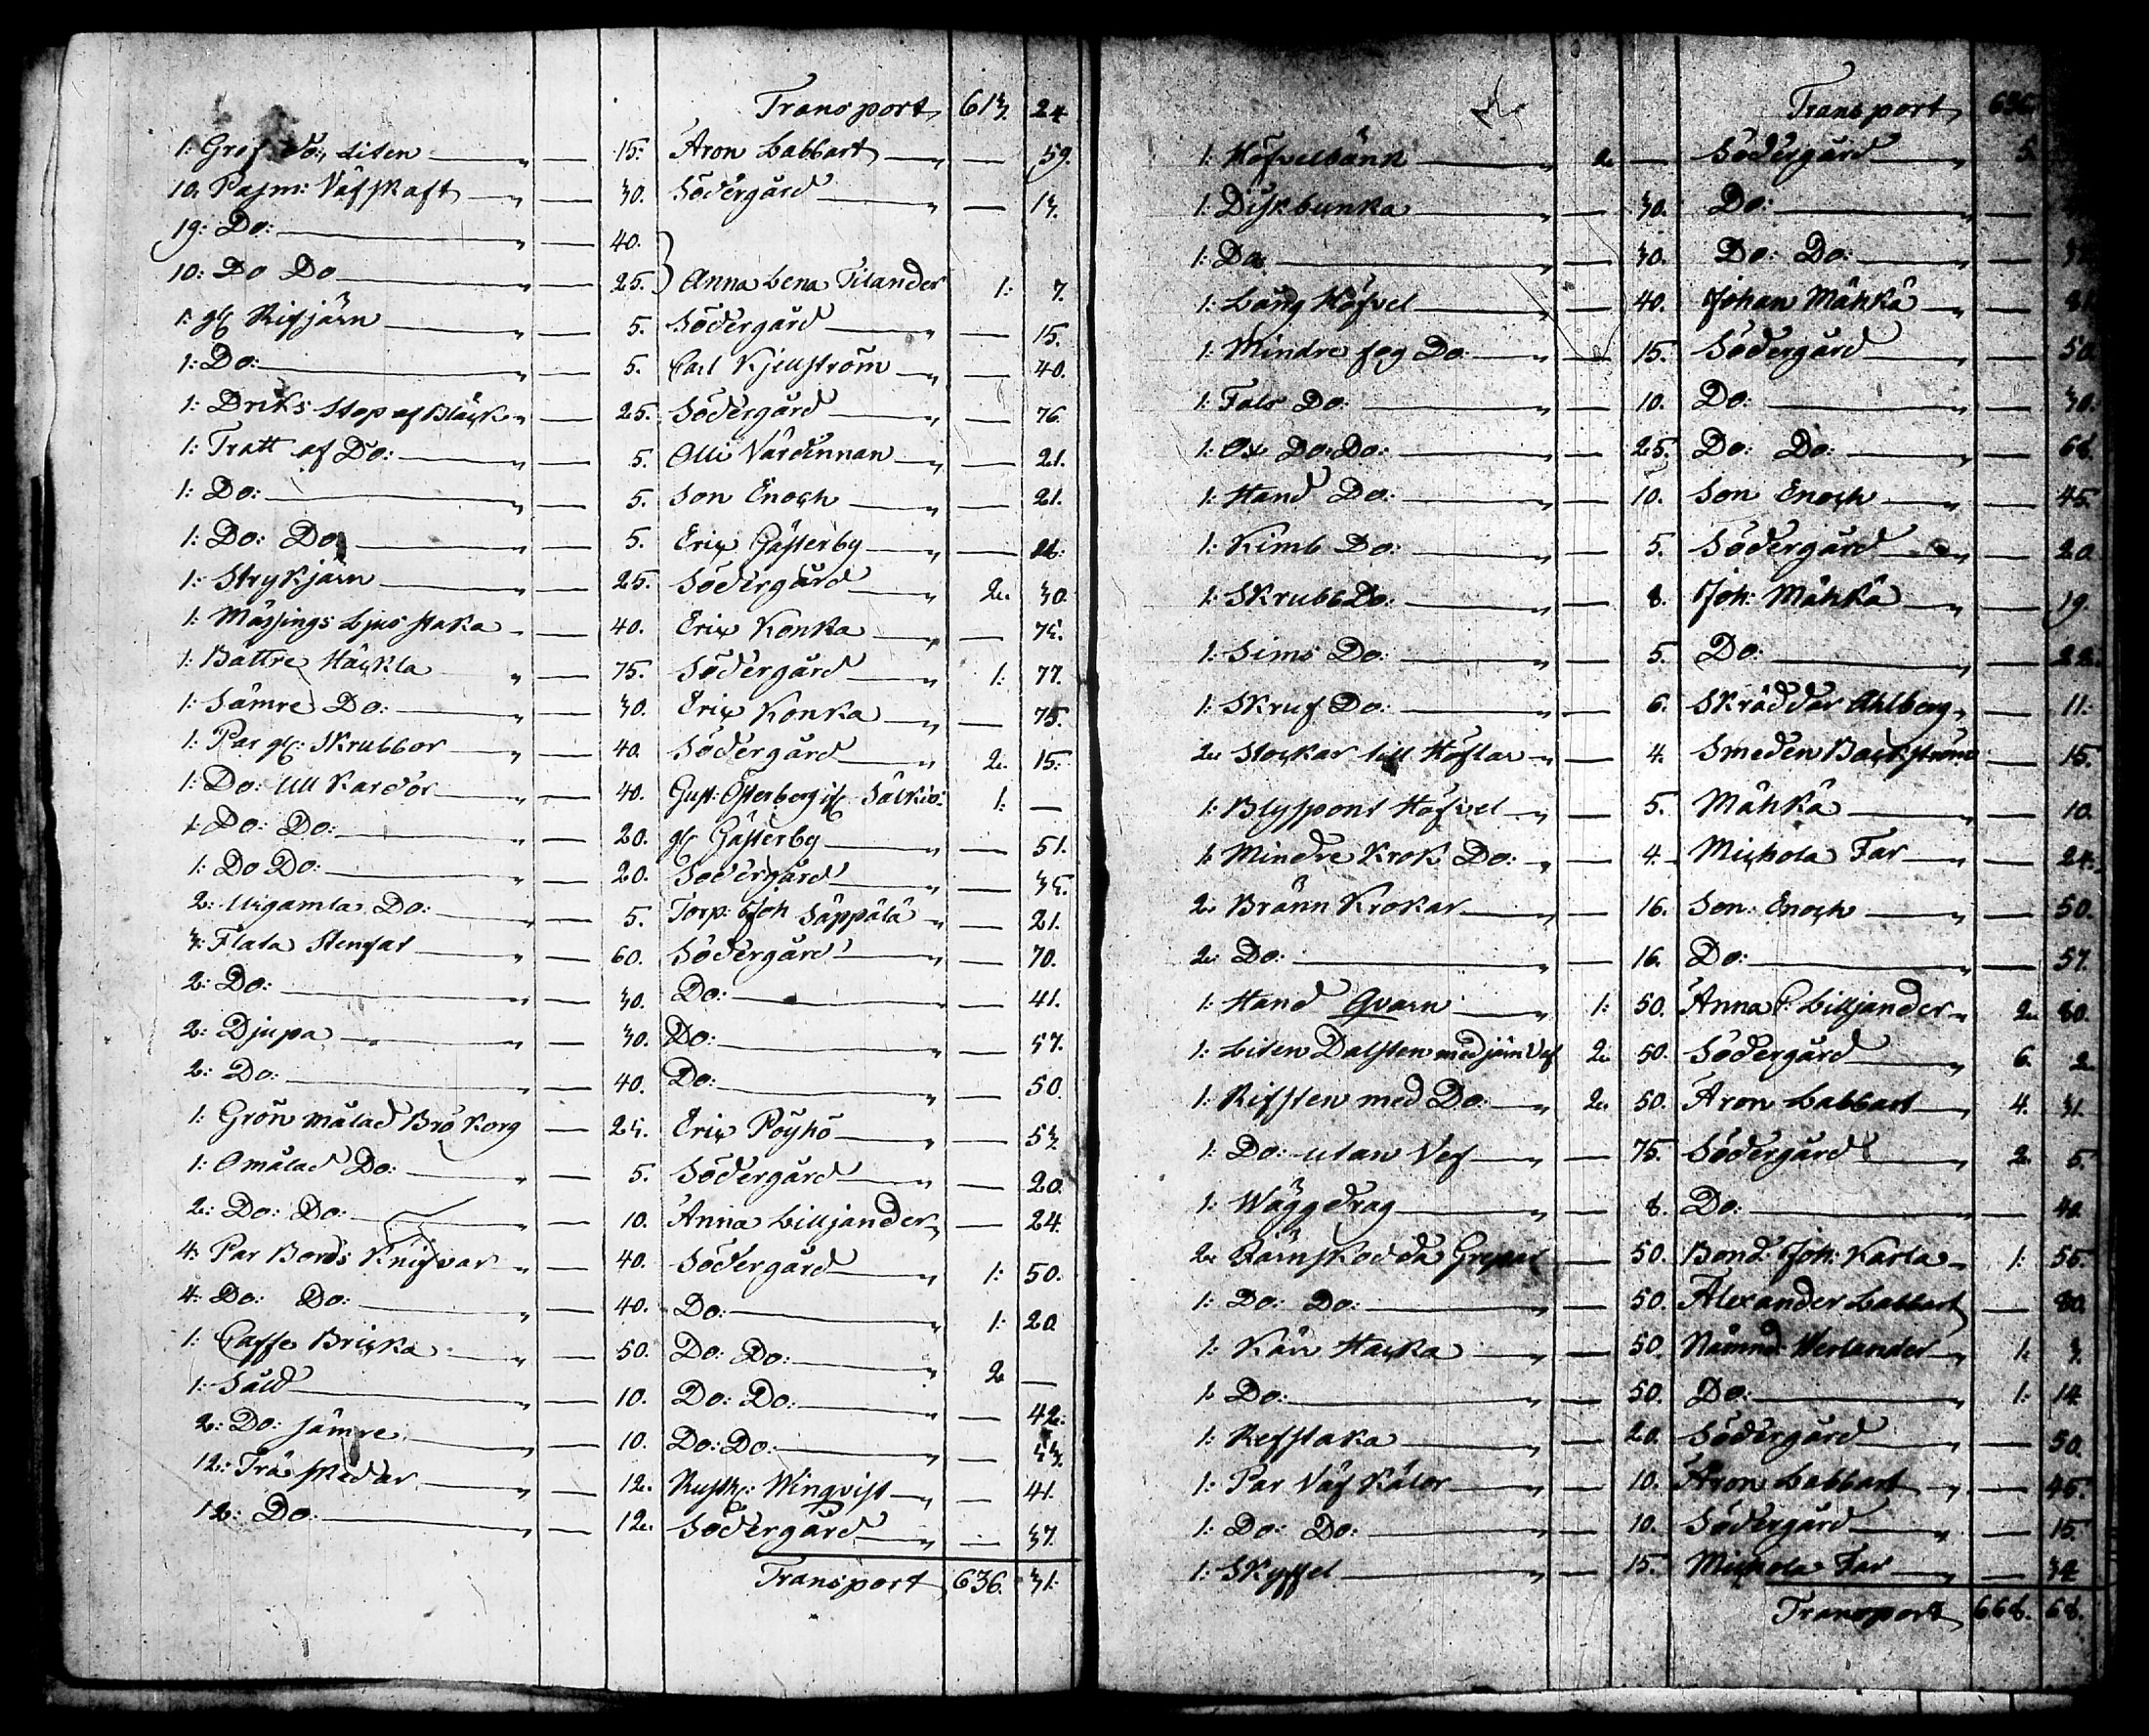 Transport 613. 24
1: Gref Do: Liten " — 15. Aron Labbart " — 59.
10. Pasm: Väfskaft " — 30. Södergård " — 13.
19: Do: " — 40.
10: Do Do " — 25. Anna Lena Tilander 1: 7.
1: gl Rifjärn " — 5. Södergård " — 15.
1: Do: " — 5. Carl Kjellström " — 40.
1: Driks Stop af Bläck " — 25. Södergård " — 76.
1: Tratt af Do: " — 5. Olli Värdinnan " — 21.
1: Do: " — 5. Son Enoch " — 21.
1: Do: Do: " — 5. Eric Gästerby " — 26.
1: Strykjärn " — 25. Södergård " 2. 30.
1: Mässings Ljus staka " — 40. Eric Konka " — 75.
1: Bättre Häckla " — 75. Södergård " 1: 77.
1: Sämre Do: " — 30. Eric Konka " — 75.
1: Par gl: Skrubbor " — 40. Södergård " 2. 15.
1: Do: Ull Kardor " — 40. Gust: Österberg 1: —
1: Do: Do: " — 20. gl Gästerby " — 51.
1: Do Do: " — 20. Södergård " — 35.
2: Urgamla Do: " — 5. Torp: Joh Säppälä " — 21.
3: Flata Stenfat " — 60. Södergård " — 70.
2: Do: " — 30. Do: " — 41.
2: Djupa " — 30. Do: " — 57.
2: Do: " — 40. Do: " — 50.
1: Grön målad Brö Korg — 25. Eric Pöyhö " — 53.
1: Omålad Do: " — 5. Södergård " — 20.
2: Do: Do: " — 10. Anna Lilljander " — 24.
4: Par Bords Knifvar " — 40. Södergård " 1: 50.
4: Do: Do: " — 40. Do: " 1: 20.
1: Caffe Bricka " — 50. Do: Do: " 2. —
1: Såld " — 10. Do: Do: " — 42.
2: Do: sämre " — 10. Do: Do: " — 53.
12: Trä skedar " — 12. Rusth: Winqvist " — 41.
12: Do: " — 12. Södergård " — 37.
Transport 636. 31.
Transport 636.
1: Höfvelbänk " 2. — Södergård " 5.
1: Diskbunka " — 30. Do: " —
1: Do: " — 30. Do: Do: " —
1: Lång Höfvel " — 40. Johan Mähkä " —
1: Mindre fog Do: " — 15. Södergård " — 50.
1: Fals Do: " — 10. Do: " — 30.
1: Ox Do: Do: " — 25. Do: Do: " — 68.
1: Hand Do: " — 10. Son Enoch " — 45.
1: Kimb Do: " — 5. Södergård " — 20.
1: Skrubb Do: " — 8. Joh: Mähkä " — 19.
1: Sims Do: " — 5. Do: " — 22.
1: Skruf Do: " — 6. Skräddar Ahlberg " — 11:
2: Stockar till Höflar " — 4. Smeden Backström — 15.
1: Blyspont Höfvel " — 5. Mähkä " — 10.
1: Mindre Krok Do: " — 4. Michola Far " — 24.
2: Bränn Krokar " — 16. Son: Enoch " — 50.
2: Do: " — 16. Do: " — 57.
1: Hand Qvarn " 1: 50. Anna C: Lilljander " 2. 80.
1: Liten Dalsten med järn Vef 2. 50. Södergård " 6. 2.
1: Rifsten med Do: " 2. 50. Aron Labbart " 4. 31.
1: Do: utan Vef " — 75. Södergård " 2. 5.
1: Wäggdrag " — 8. Do: " — 40.
2: Järnskodda Grepar — 50. Bond: Joh: Karla " 1: 55.
1: Do: Do: " — 50. Alexander Labbart — 80.
1: Kän Hacka " — 50. Nämnd: Werlander " 1: 3.
1: Do: " — 50. Do: " 1: 14.
1: Refstaka " — 20. Södergård " — 50.
1: Par Väf Kälor " — 10. Aron Labbart " — 45.
1: Do: Do: " — 10. Södergård " — 15.
1: Skyffel " — 15. Michola Far " — 34
Transport 668. 68.